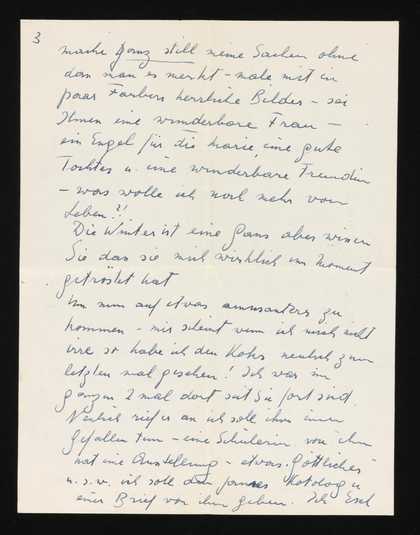 3
mache ganz still meine Sachen ohne
dass man es merkt – male mit ein
paar Farben herrliche Bilder – sei
Ihnen eine wunderbare Frau –
ein Engel für die Marie, eine gute
Tochter u. eine wunderbare Freundin
– was wolle ich noch mehr vom
Leben?!
Die Winter ist eine Gans aber wissen
Sie das sie mich wirklich im Moment
getröstet hat
Um nun auf etwas amusanteres zu
kommen – mir scheint wenn ich mich nicht
irre so habe ich den neulich zum
letzten mal gesehen! Ich war im
ganzen 2 mal dort seit Sie fort sind.
Neulich rief er an ich soll ihm einen
Gefallen tun – eine Schülerin von ihm
hat eine Ausstellung – etwas göttliches
u.s.w. ich soll dem Katalog u
einen Brief von ihm geben. Ich Esel